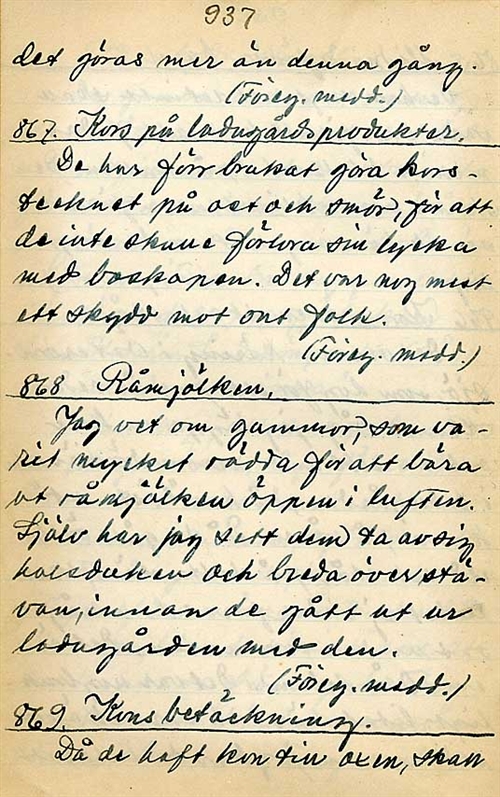 937
det göras mer än denna gång.
(Föreg. medd.)
867. Kors på ladugårdsprodukter.
De har förr brukat göra kors-
tecknet på ost och smör, för att
de inte skulle förlora sin lycka
med boskapen. Det var nog mest
ett skydd mot ont folk.
(Föreg. medd.)
868 Råmjölken.
Jag vet om gummor, som va-
rit mycket rädda för att bära
ut råmjölken öppen i luften.
Själv har jag sett dem ta av sig
halsduken och breda över stä-
van, innan de gått ut ur
ladugården med den.
(Föreg. medd.)
869. Kons betäckning.
Då de haft kon till oxen, skall